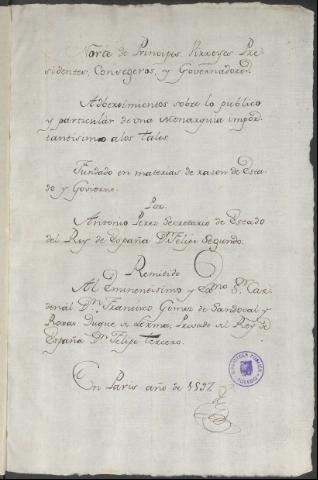 Norte de Principes, Virreyes, Pre
sidentes, Consegeros, y Governadores.
Advertimientos sobre lo público
y particular de una Monarquia impor
tantisimo a los tales.
Fundado en materias de razon de Esta-
do y Govierno.
Por
Antonio Perez Secretario de Estado
del Rey de España Dn. Felipe Segundo.
Remitido
Al Eminentisimo y Exmo. Sr. Car-
denal Dn. Francisco Gomez de Sandoval y
Roxas, Duque de Lerma, Privado del Rey de
España Dn. Felipe tercero.
En Paris año de
BIBLIOTECA PUBLICA
TOLEDO